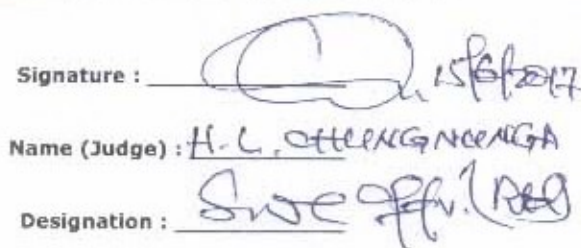 Signature : 15/6/2017
Name (Judge) : H.L. CHUNGNUNGA
Designation :